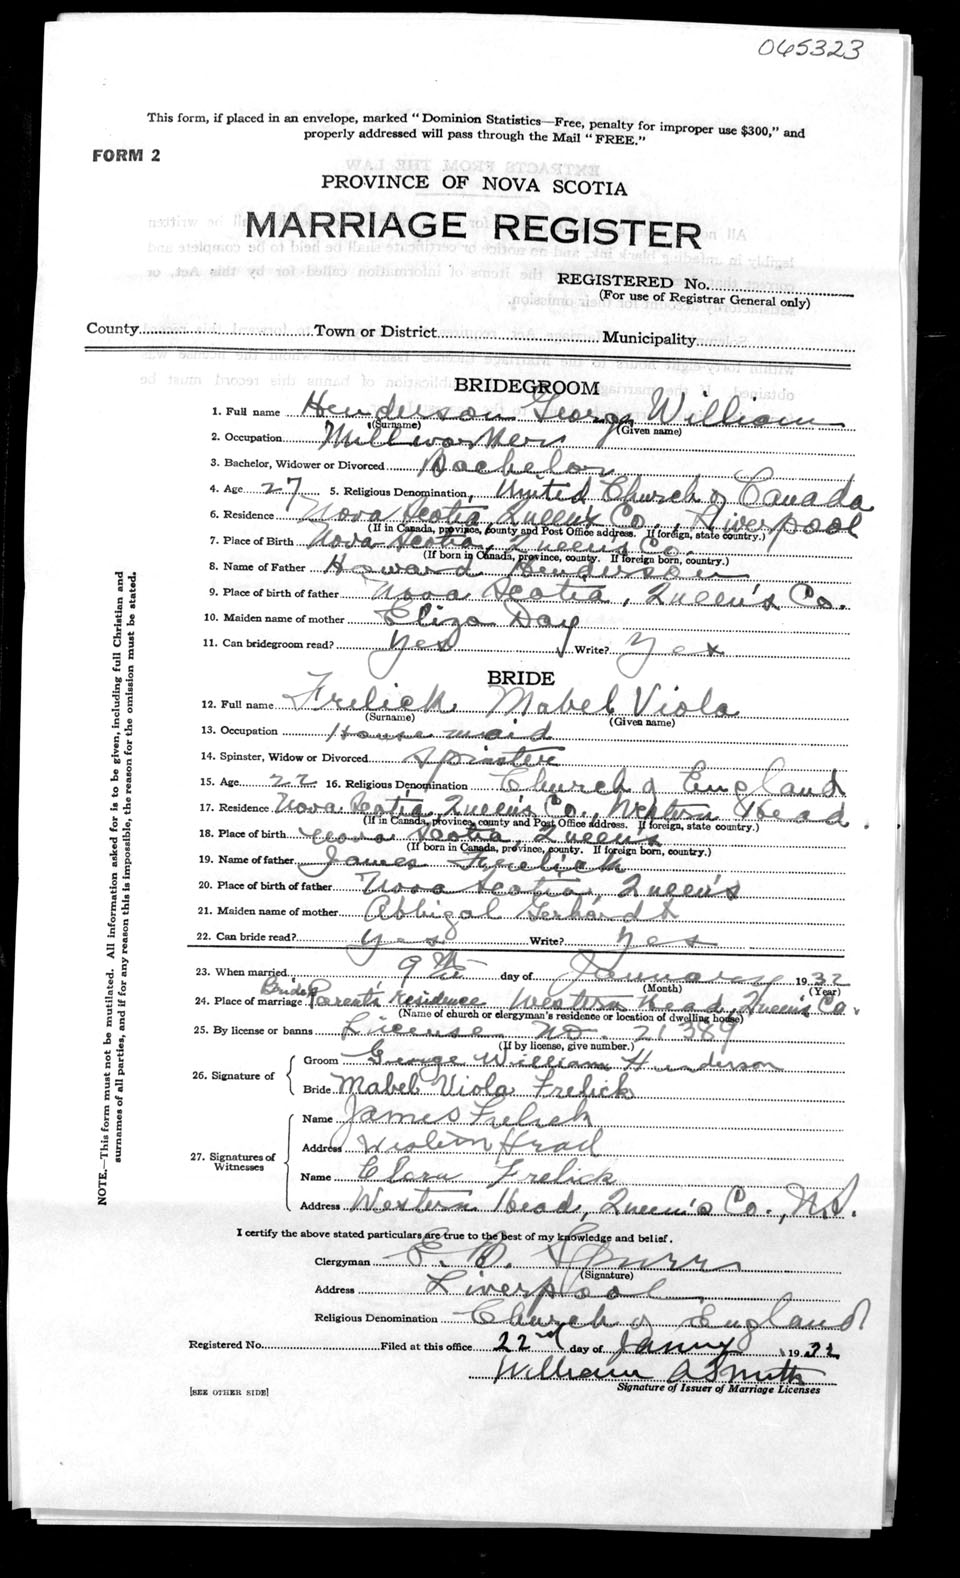 065323
This form, if placed in an envelope, marked "Dominion Statistics—Free, penalty for improper use $300," and
properly addressed will pass through the Mail "FREE."
FORM 2
PROVINCE OF NOVA SCOTIA
MARRIAGE REGISTER
REGISTERED No.
(For use of Registrar General only)
County Town or District Municipality
BRIDEGROOM
1. Full name Henderson George William
(Surname) (Given name)
2. Occupation Millworker
3. Bachelor, Widower or Divorced Bachelor
4. Age 27 5. Religious Denomination, United Church of Canada
6. Residence Nova Scotia, Queen's Co., Liverpool
(If in Canada, province, county and Post Office address. If foreign, state country.)
7. Place of Birth Nova Scotia, Queens Co.
(If born in Canada, province, county. If foreign born, country.)
8. Name of Father Howard Henderson
9. Place of birth of father Nova Scotia, Queen's Co.
10. Maiden name of mother Eliza Day
11. Can bridegroom read? Yes Write? Yes
BRIDE
12. Full name Frelick Mabel Viola
(Surname) (Given name)
13. Occupation Housemaid
14. Spinster, Widow or Divorced Spinster
15. Age 22 16. Religious Denomination Church of England
17. Residence Nova Scotia, Queen's Co., Western Head.
(If in Canada, province, county and Post Office address. If foreign, state country.)
18. Place of birth Nova Scotia, Queens
(If born in Canada, province, county. If foreign born, country.)
19. Name of father James Frelick
20. Place of birth of father Nova Scotia, Queen's
21. Maiden name of mother Abbigal Gerhardt
22. Can bride read? Yes Write? Yes
23. When married 9th day of January 1932
(Month) (Year)
24. Place of marriage Bride's Parent's Residence Western Head, Queen's Co.
(Name of church or clergyman's residence or location of dwelling house)
25. By license or banns License No. 21389
(If by license, give number.)
26. Signature of Groom George William Henderson
Bride Mabel Viola Frelick
27. Signatures of Witnesses
Name James Frelick
Address Western Head
Name Clara Frelick
Address Western Head, Queen's Co., N.S.
I certify the above stated particulars are true to the best of my knowledge and belief.
Clergyman E. D.
(Signature)
Address Liverpool
Religious Denomination Church of England
Registered No. Filed at this office 22nd day of Janury 1932
William A Smith
Signature of Issuer of Marriage Licenses
[SEE OTHER SIDE]
NOTE.—This form must not be mutilated. All information asked for is to be given, including full Christian and
surnames of all parties, and if for any reason this is impossible, the reason for the omission must be stated.